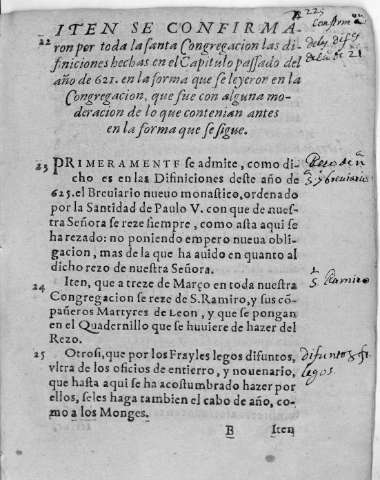 22
ITEN SE CONFIRMA-
22 ron por toda la santa Congregacion las di-
finiciones hechas en el Capitulo passado del
año de 621. en la forma que se leyerõ en la
Congregacion, que fue con alguna mo-
deracion de lo que contenian antes
en la forma que se sigue.
23 PRIMERAMENTE se admite, como di-
cho es en las Difiniciones deste año de
625. el Breviario nueuo monastico, ordenado
por la Santidad de Paulo V. con que de nues-
tra Señora se reze siempre, como asta aqui se
ha rezado: no poniendo empero nueua obli-
gacion, mas de la que ha auido en quanto al
dicho rezo de nuestra Señora.
24 Iten, que a treze de Março en toda nuestra
Congregacion se reze de S. Ramiro, y sus cõ-
pañeros Martyres de Leon, y que se pongan
en el Quadernillo que se huuiere de hazer del
Rezo.
S. Ramiro
25 Otrosi, que por los Frayles legos difuntos,
vltra de los oficios de entierro, y nouenario,
que hasta aqui se ha acostumbrado hazer por
ellos, se les haga tambien el cabo de año, co-
mo a los Monges.
difuntos
legos.
B Iten